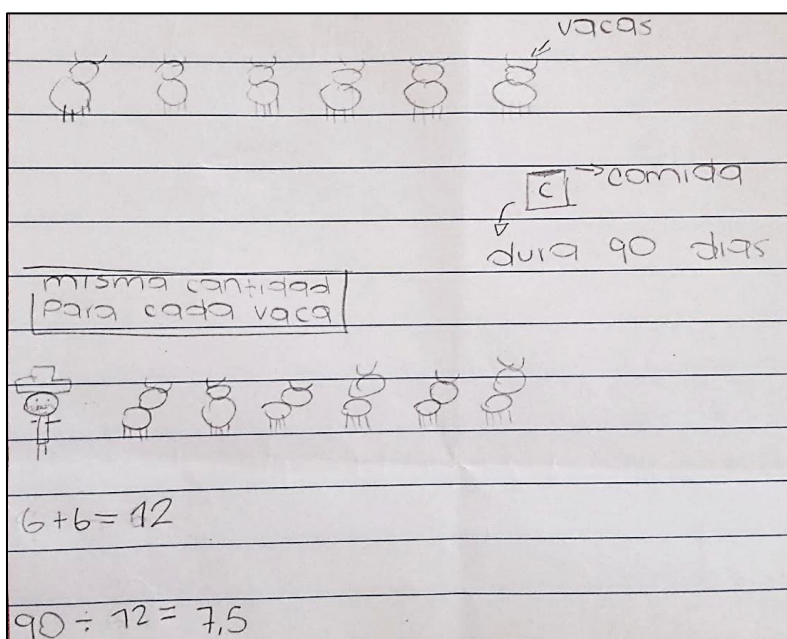 vacas
C → comida
dura 90 dias
misma cantidad
Para cada vaca
6+6=12
90 ÷ 12 = 7,5